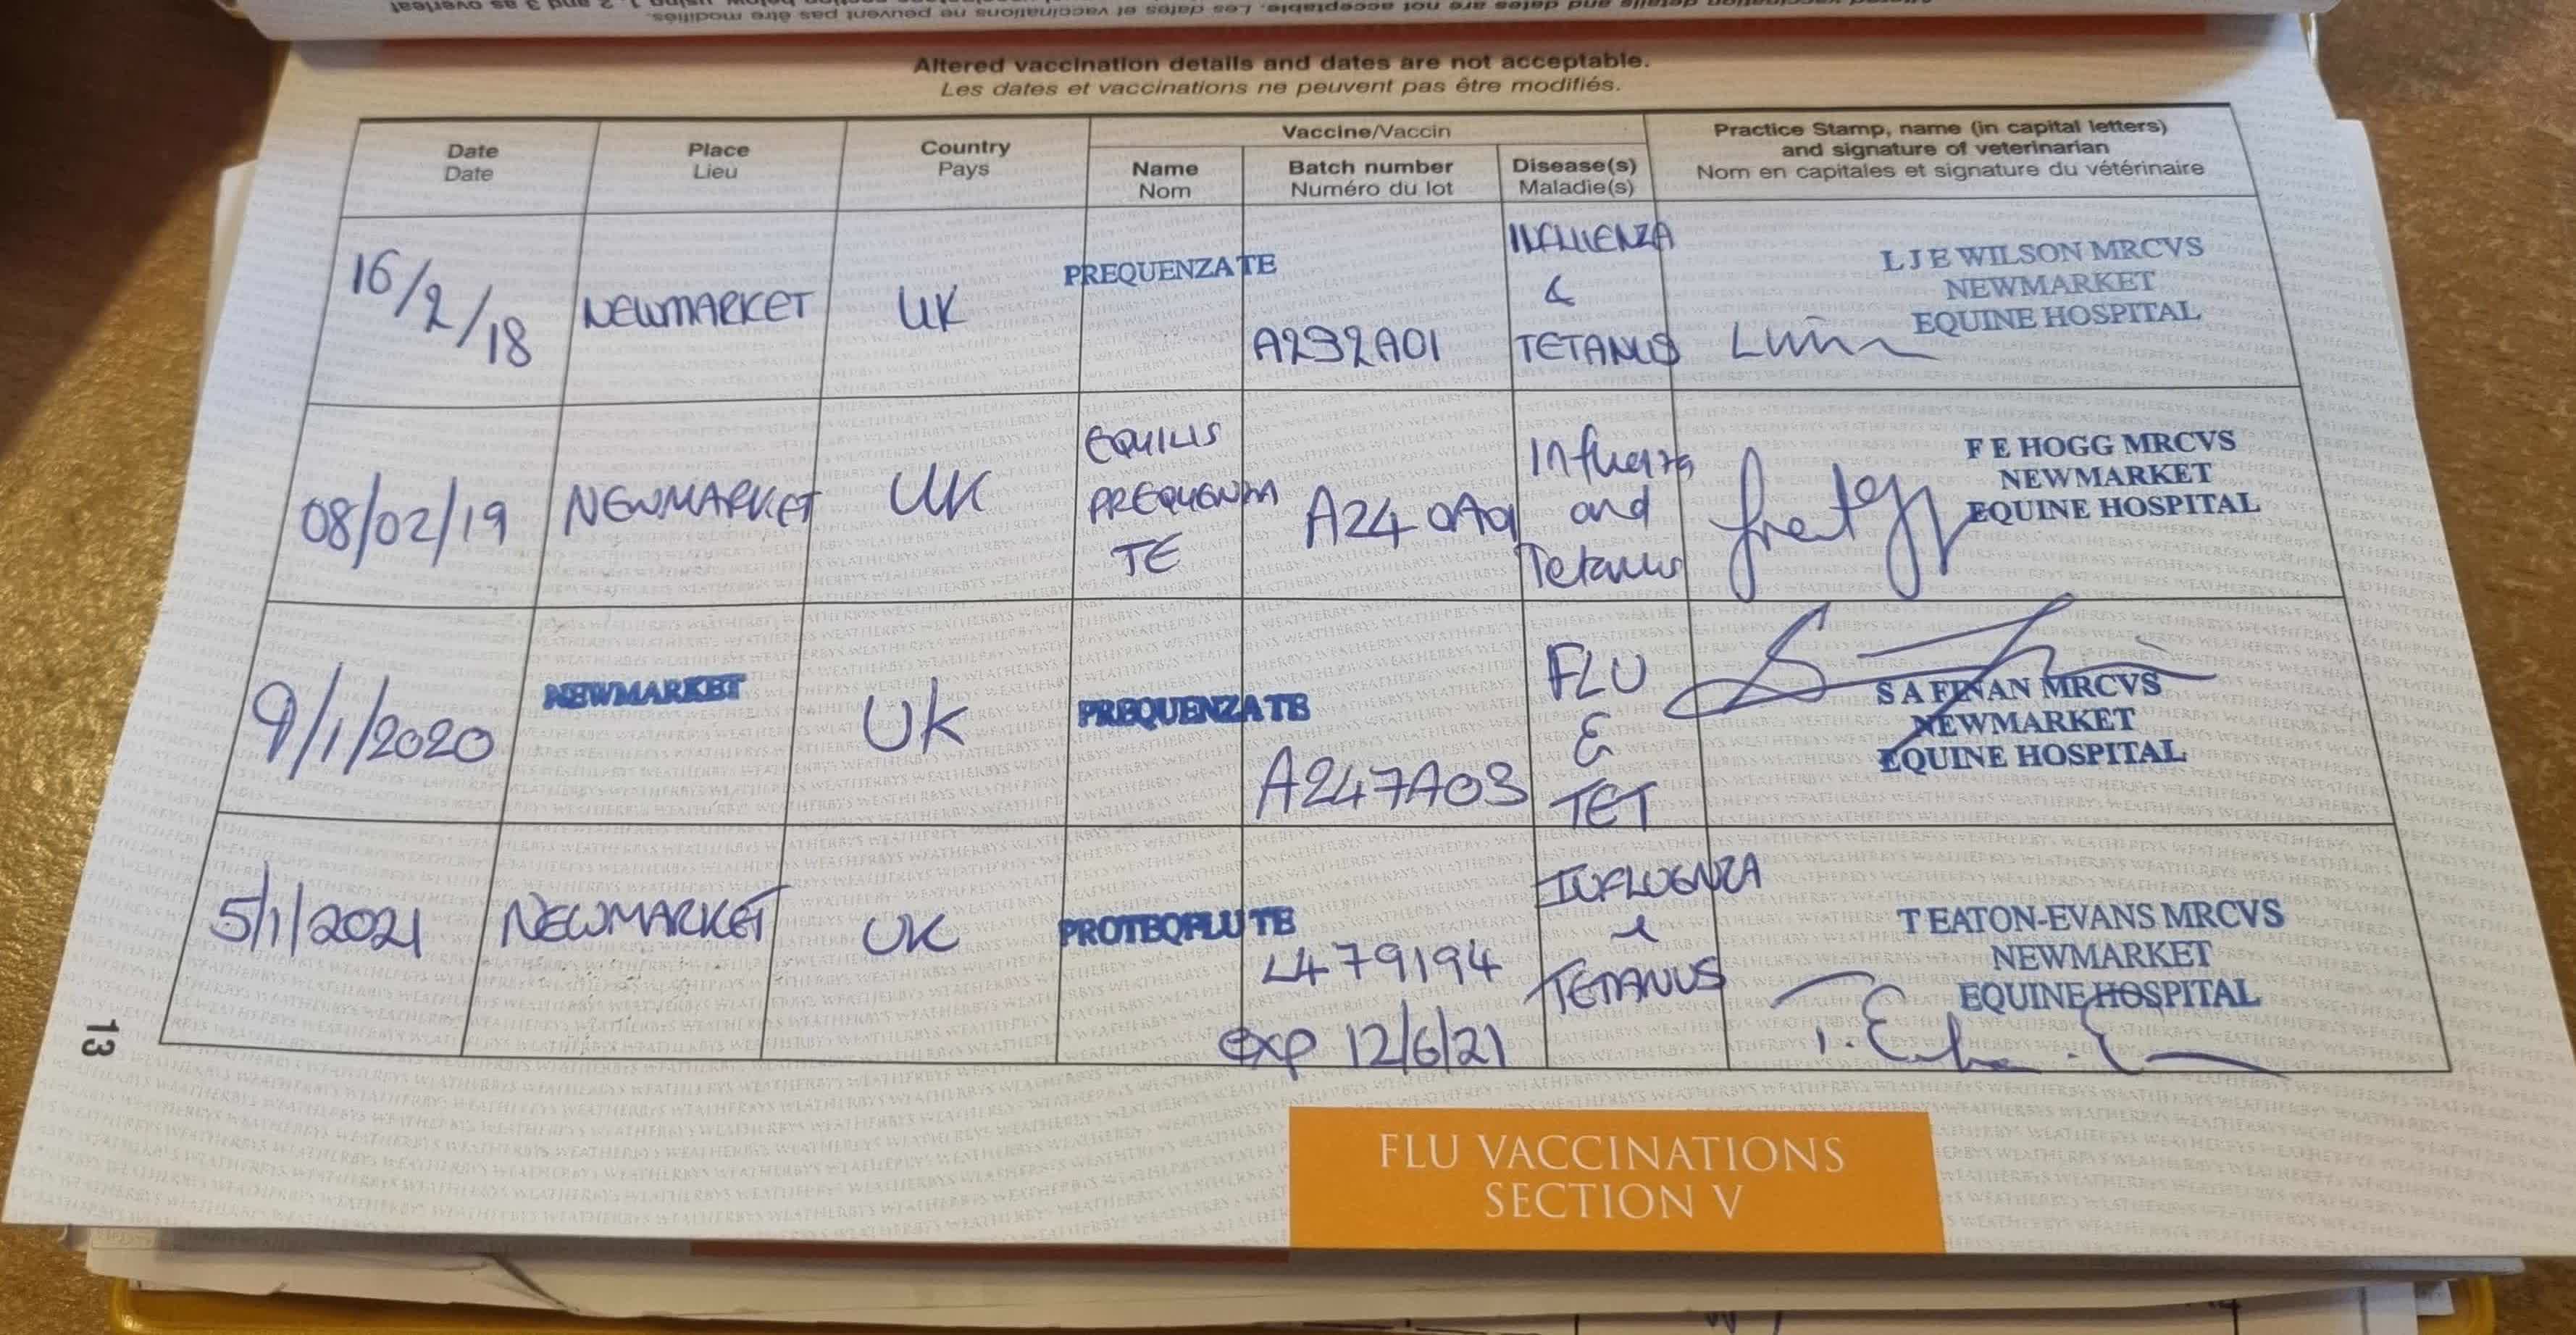 Altered vaccination details and dates are not acceptable.
Les dates et vaccinations ne peuvent pas être modifiés.
Date
Date
Place
Lieu
Country
Pays
Vaccine/Vaccin
Name
Nom
Batch number
Numéro du lot
Disease(s)
Maladie(s)
Practice Stamp, name (in capital letters)
and signature of veterinarian
Nom en capitales et signature du vétérinaire
16/2/18
NEWMARKET
UK
PREQUENZA TE
A232A01
INFLUENZA
&
TETANUS
L J E WILSON MRCVS
NEWMARKET
EQUINE HOSPITAL
08/02/19
NEWMARKET
UK
EQUILIS
PREQUENZA
TE
A240A01
Influenza
and
Tetanus
F E HOGG MRCVS
NEWMARKET
EQUINE HOSPITAL
9/1/2020
NEWMARKET
UK
PREQUENZA TE
A247A03
FLU
&
TET
S A FINAN MRCVS
NEWMARKET
EQUINE HOSPITAL
5/1/2021
NEWMARKET
UK
PROTEQFLU TE
L479194
exp 12/6/21
INFLUENZA
&
TETANUS
T EATON-EVANS MRCVS
NEWMARKET
EQUINE HOSPITAL
13
FLU VACCINATIONS
SECTION V